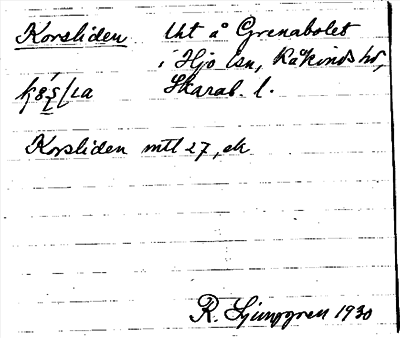 Korsliden Uht å Grenabolet
i Hjo lsn, Kåkinds hd,
Skarab. l.
Korsliden mtl 27, ek
R. Ljunggren 1930